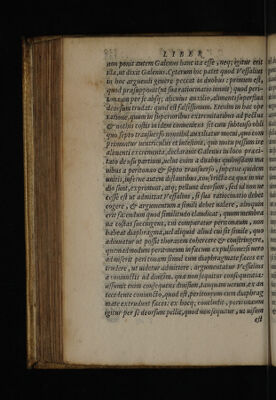 LIBER
non ponit autem Galenus hanc ita esse, neq; igitur erit
illa, ut dixit Galenus. Cæterum hoc patet quod Vessalius
in hoc arguendi genere peccat in duobus: primum est,
quod præsupponit (ut sua ratiocinatio innuit) quod peri-
tonæum per se absq; alicuius auxilio, alimenti superflua
deorsum trudat: quod est falsissimum. Etenim in hac ope
ratione, quam in superioribus excrementorum ad pectus
& nothis costis in idem conueniens
quo septo transuerso nonnihil auxiliatur motui, quo com
primuntur uentriculus et intestina, quo motu possim im
alimenti excrementa, declarauit Galenus in loco præci-
tato de usu partium, uelut enim a duabus quibusdam ma
nibus a peritonæo & septo transuerso, superne quidem
unitis, inferne autem distantibus, omnia ea quæ in me
dio sunt, exprimat, atq; pellunt deorsum, sed id non ne
cesse est ut admittat Vessalius, si sua ratiocinatio debet
cogere, & argumentum a simili debet ualere, alioquin
erit sic uentum quod similitudo claudicat, quum membra
na costas succingens, cui comparatur peritonæum, non
habeat diaphragma, uel aliquid aliud cui sit simile, quo
adiuuetur ut possit thoracem cohercere & constringere,
quemadmodum peritonæum in fæcum expulsione si uero
admiserit peritonæum simul cum diaphragmate fæces ex
trudere, ut uidetur admittere, argumentatur Vessalius
a coniunctis ad diuisim, quæ non sequitur consequentia:
assumit enim consequens diuisum, tanquam uerum, ex an
tecedente coniuncto, quod est, peritonæum cum diaphrag
mate extrudunt fæces: ex hocq; concludit, peritonæum
igitur per se deorsum pellit, quod non sequitur, ut uisum
est